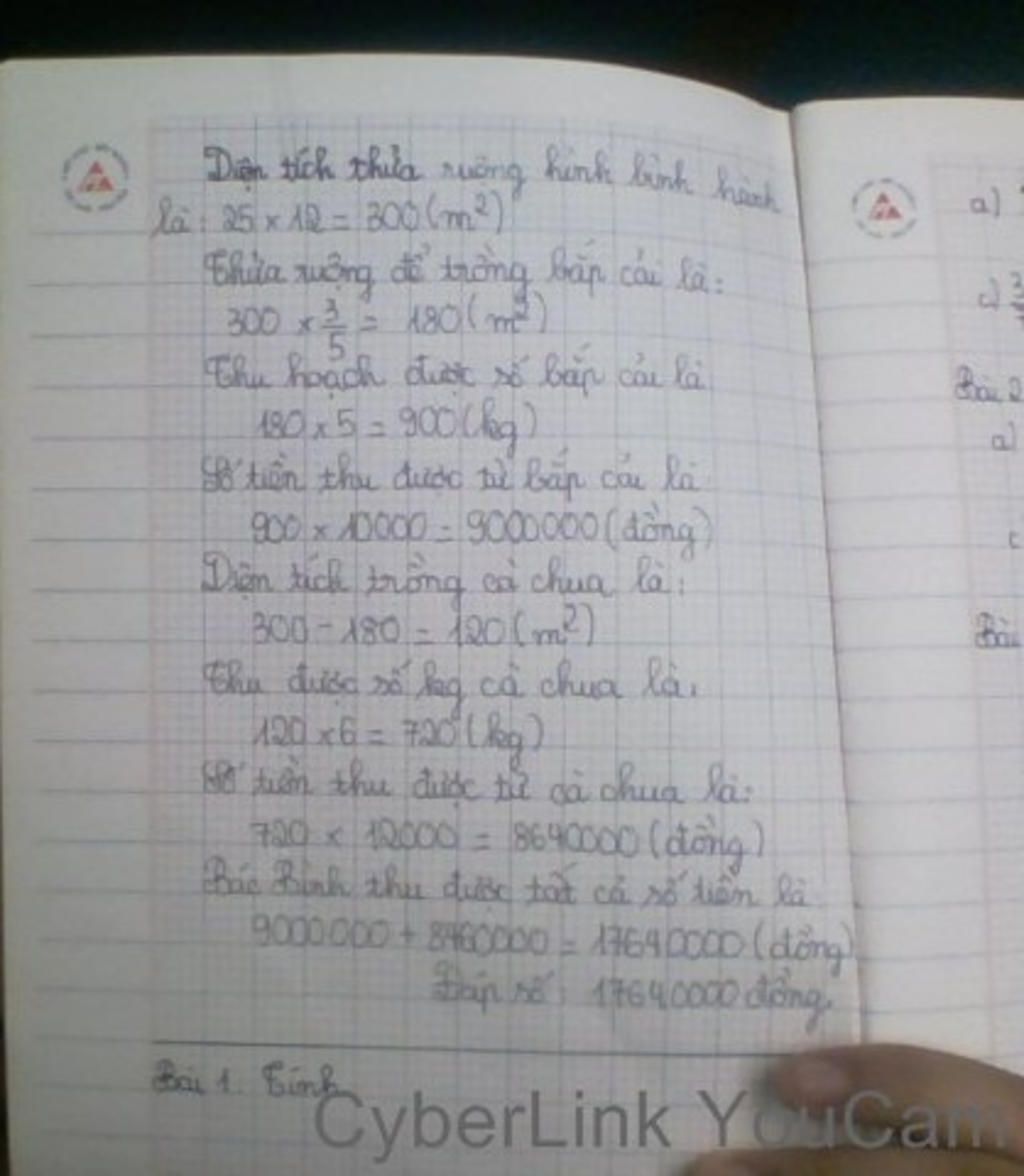 Diện tích thửa ruộng hình bình hành
là: 25 × 12 = 300 (m²)
Thửa ruộng để trồng bắp cải là:
300 × 3/5 = 180 (m²)
Thu hoạch được số bắp cải là
180 × 5 = 900 (kg)
Số tiền thu được từ bắp cải là
900 × 10000 = 9000000 (đồng)
Diện tích trồng cà chua là:
300 - 180 = 120 (m²)
Thu được số kg cà chua là:
120 × 6 = 720 (kg)
Số tiền thu được từ cà chua là:
720 × 12000 = 8640000 (đồng)
Bác Bình thu được tất cả số tiền là
9000000 + 8460000 = 17640000 (đồng)
Đáp số: 17640000 đồng.
Bài 1. Tính
a)
c) 3
Bài 2
a)
c
Bài
CyberLink YouCam